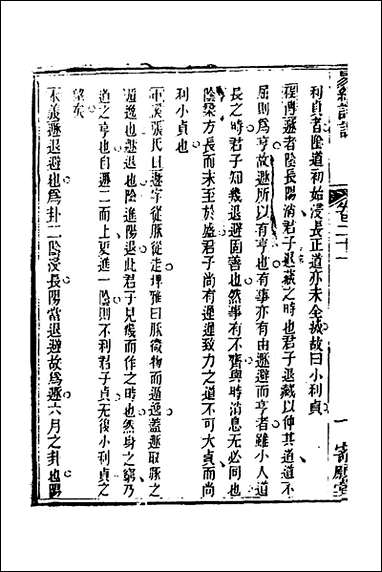 易經詳說
二十一
一
利貞者陰道初始浸長正道亦未全滅故曰小利貞
程傳遯者陰長陽消君子退藏之時也君子退藏以伸其道道不
屈則爲亨故遯所以有亨也在事亦有由遯避而亨者雖小人道
長之時君子知幾退避固善也然事有不齊與時消息无必同也
陰柔方長而未至於盛君子尚有遲遲致力之道不可大貞而尚
利小貞也
中溪張氏曰遯字從豚從走埤雅曰豚微物而遁逸蓋遯取豚之
遁逸也遯退也陰進陽退此君子見幾而作之時也然身之窮乃
道之亨也自遯二而上更進一陰則不利君子貞无復小利貞之
望矣
本義遯退避也爲卦二陰浸長陽當退避故爲遯六月之卦也陽